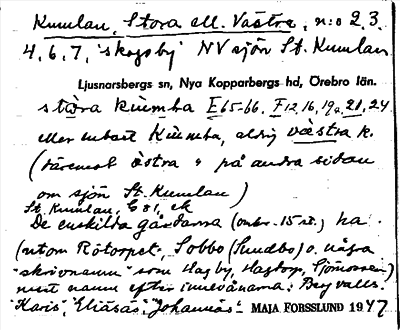 Kumlan, Stora ell. Västra, n:o 2.3.
4, 6, 7, "skogsby" NV sjön St. Kumlan
Ljusnarsbergs sn, Nya Kopparbergs hd, Örebro län.
stora kumla E 65-66, F 12, 16, 19, 21, 24
eller enbart Kumla, aldrig västra k.
(däremot östra " på andra sidan
om sjön St. Kumlan)
St. Kumlan, G 81, ek
De enskilda gårdarna (omkr. 15 st.) ha
(utom Rötorpet, Sobbo (Sundbo) o. några
"skrivnamn" som Hagby, Hagtorp,
mest namn efter innevånarna:
"Karis", "Eliasas", "Johannäs". MAJA FORSSLUND 1947